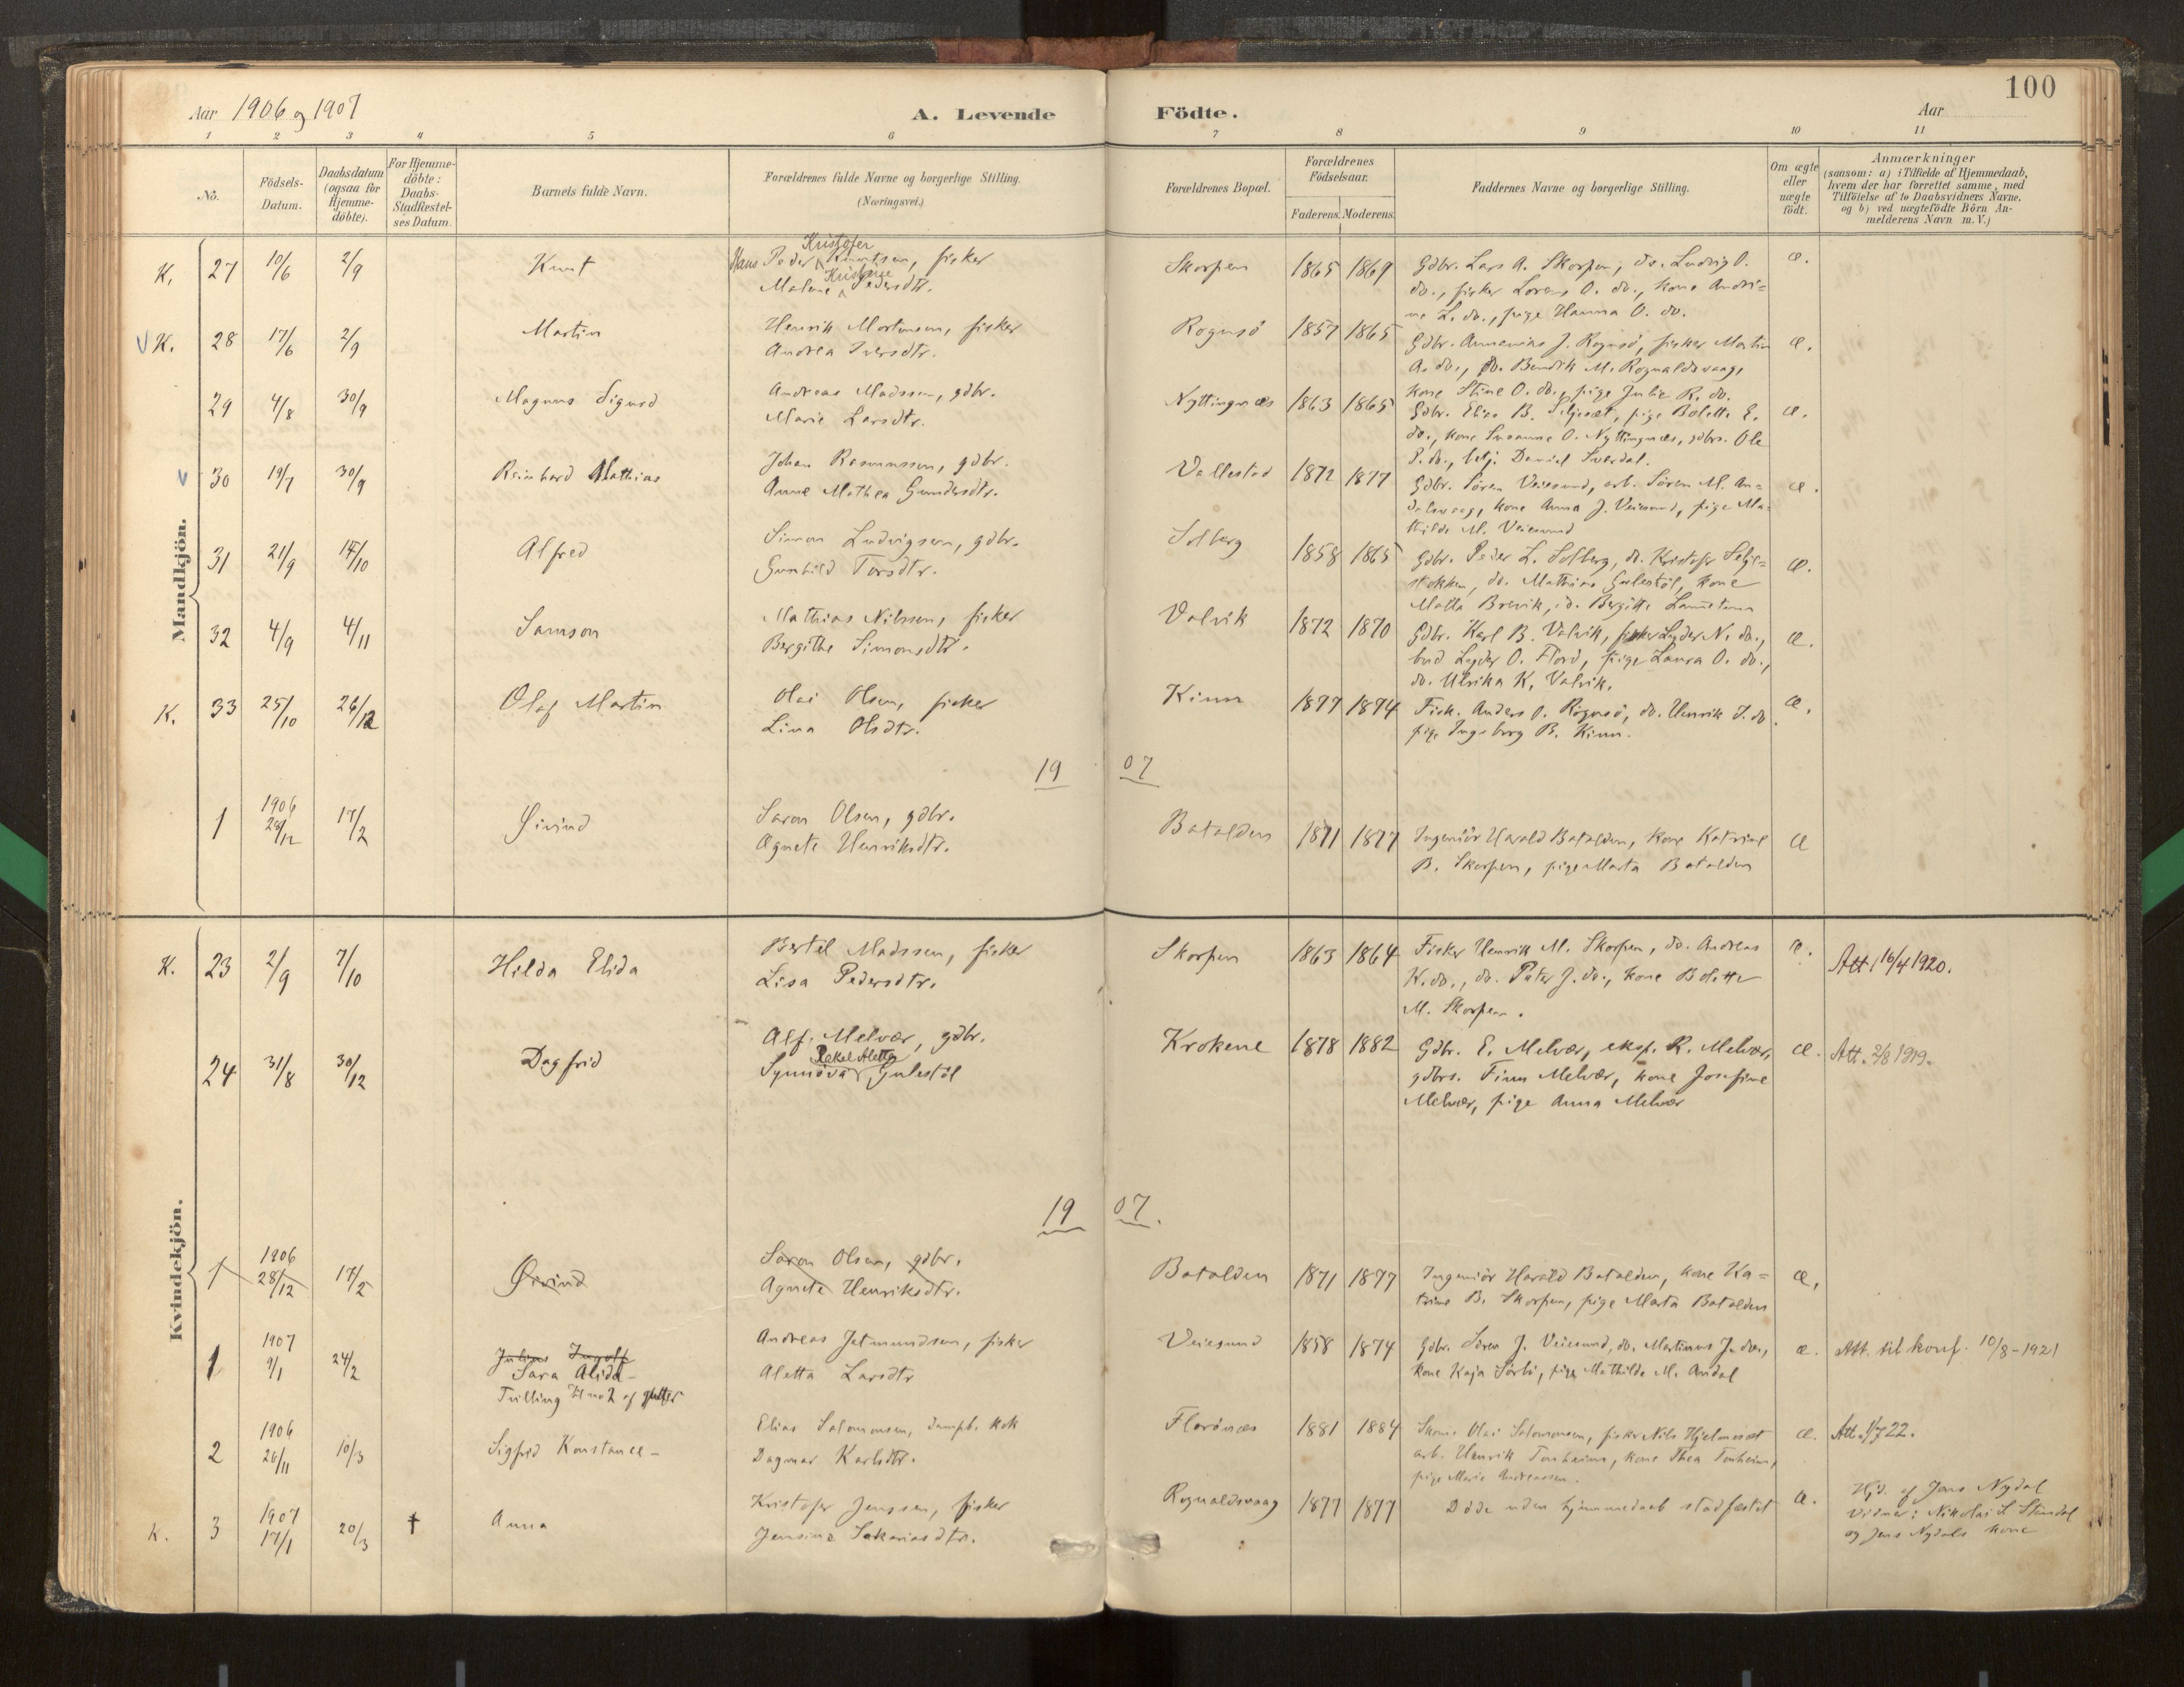 100
Aar 1906 og 1907
A. Levende Födte.
Aar
1 2 3 4 5 6 7 8 9 10 11
No.
Födsels-Datum.
Daabsdatum (ogsaa for Hjemme-döbte).
For Hjemme-döbte: Daabs-Stadfæstel-ses Datum.
Barnets fulde Navn.
Forældrenes fulde Navne og borgerlige Stilling.
(Næringsvei.)
Forældrenes Bopæl.
Forældrenes Födselsaar.
Faderens. Moderens.
Faddernes Navne og borgerlige Stilling.
Om ægte eller uægte födt.
Anmærkninger
(saasom: a) i Tilfælde af Hjemmedaab, hvem der har forrettet samme, med Tilföielse af to Daabsvidners Navne, og b) ved uægtefödte Börn An-melderens Navn m. V.)
Mandkjön.
K. 27 10/6 2/9 Knut
Kristofer
Hans Peder Knutsen, fisker
Kristine
Malene Pedersdtr.
Skorpen 1865 1869
Gdbr. Lars A. Skorpen, do. Ludvig O.
do., fisker Lorens O. do., kone Andri=
ne L. do., pige Hanna O. do.
æ.
K. 28 17/6 2/9 Martin
Henrik Mortensen, fisker
Andrea Iversdtr.
Rognsö 1857 1865
Gdbr. Annanias J. Rognsö, fisker Martin
A. do., do. Bendik M. Rognaldsvaag,
kone Stine O. do., pige Julie R. do.
æ.
29 4/8 30/9 Magnus Sigurd
Andreas Madssen, gdbr.
Marie Larsdtr.
Nyttingnæs 1863 1865
Gdbr. Elias B. Seljeset, pige Bolette E.
do., kone Susanne O. Nyttingnæs, gdbrs. Ole
P. do., Daniel Svardal.
æ.
30 19/7 30/9 Reinhard Mathias
Johan Rasmussen, gdbr.
Anne Mathea Gundersdtr.
Vallestad 1872 1877
Gdbr. Sören Veiesund, arb. Sören M. An=
dalsvaag, kone Anna J. Veiesund, pige Ma=
thilde M. Veiesund
æ.
31 21/9 14/10 Alfred
Simon Ludvigsen, gdbr.
Gunhild Torsdtr.
Solberg 1858 1865
Gdbr. Peder L. Solberg, do. Kristofer Selje=
stokken, do. Mathias Gulestöl, kone
Malla Brevik, do. Bergitte
æ.
32 4/9 4/11 Samson
Mathias Nilssen, fisker
Bergithe Simonsdtr.
Valvik 1872 1870
Gdbr. Karl B. Valvik, fisker Lyder N. do.,
bud Lyder O. Florö, pige Laura O. do.,
do. Ulrika K. Valvik.
æ.
K. 33 25/10 26/12 Olaf Martin
Olai Olsen, fisker
Lina Olsdtr.
Kinn 1877 1874
Fisk. Anders O. Rognsö, do. Henrik J. do
pige Ingeborg B. Kinn.
æ.
19 07
1 1906 28/12 17/2 Øivind
Saron Olsen, gdbr.
Agnete Henriksdtr.
Batalden 1871 1877
Ingeniör Harald Batalden, kone Katrine
B. Skorpen, pige Marta Batalden
æ
Kvindekjön.
K. 23 2/9 7/10 Hilda Elida
Bertel Madssen, fisker
Lisa Pedersdtr.
Skorpen 1863 1864
Fisker Henrik M. Skorpen, do. Andreas
K. do., do. Peter J. do., kone Bolette
M. Skorpen.
æ. Att. 16/4 1920.
24 31/8 30/12 Dagfrid
Alf. Melvær, gdbr.
Rakel Aletta
Synnöva Gulestöl
Krokene 1878 1882
Gdbr. E. Melvær, eksp. R. Melvær,
gdbrs. Finn Melvær, kone Josefine
Melvær, pige Anna Melvær
æ. Att. 2/8 1919.
19 07.
1 1906 28/12 17/2 Øivind
Saron Olsen, gdbr.
Agnete Henriksdtr.
Batalden 1871 1877
Ingeniör Harald Batalden, kone Ka=
trine B. Skorpen, pige Marta Batalden
æ.
1 1907 9/1 24/2 Julius Ingolf
Sara Alida-
Tvilling til no 2 af gutter
Andreas Jetmundsen, fisker
Aletta Larsdtr
Veiesund 1858 1874
Gdbr. Sören J. Veiesund, do. Martinus J. do.,
kone Kaja Sörbö, pige Mathilde M. Andal
æ. Att. til konf. 10/8-1921
2 1906 26/11 10/3 Sigfrid Konstance-
Elias Salomonsen, dampb. kok
Dagmar Karlsdtr.
Florönæs 1881 1884
Skom. Olai Salomonsen, fisker Nils Hjelmeset
arb. Henrik Tonheim, kone Thea Tonheim,
pige Marie Andreassen.
æ. Att. 1/7 22.
K. 3 1907 17/1 20/3 † Anna
Kristofer Jenssen, fisker
Jensine Sakariasdtr.
Rognaldsvaag 1877 1877
Döde uden hjemmedaab stadfæstet
æ.
Hjd. af Jens Nydal
Vidner: Nikolai S. Standal
og Jens Nydals kone